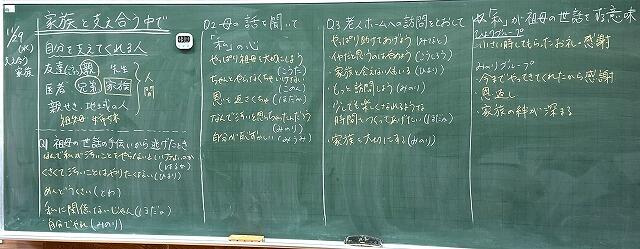 11/9
(火)
家族
家族と支え合う中で
自分を支えてくれる人
友達 親 先生
医者 兄弟 家族
人間
親せき・地域の人
祖先
Q1 祖母の世話の手伝いから逃げたとき
なんで私が汚いことをやらないといけないのか
(はるか)
くさくて汚いことはやりたくない(ひまり)
めんどうくさい(とわ)
私に関係ないじゃん(ほだか)
自分でやれ(みのり)
Q2 母の話を聞いて
「私」の心
やっぱり祖母を大切にしよう
(こうた)
ちゃんとやらなくちゃいけない
(このん)
恩を返さなくちゃ(ほだか)
なんで汚いと思っちゃったんだろう
(みのり)
自分が恥ずかしい
Q3 老人ホームへの訪問をとおして
やっぱり助けてあげよう(みなと)
イヤだと思うのはやめよう(こうしろう)
・家族と会えない人もいる(ひまり)
・もっと訪問しよう(みのり)
少しでも楽しくなれるような
時間をつくってあげたい(ほだか)
家族を大切にする(みのり)
「私」が祖母の世話をする意味
ひまりグループ
小さい時してもらったお礼・感謝
みのりグループ
・今までやってきてくれたから感謝
・恩返し
・家族の絆が深まる